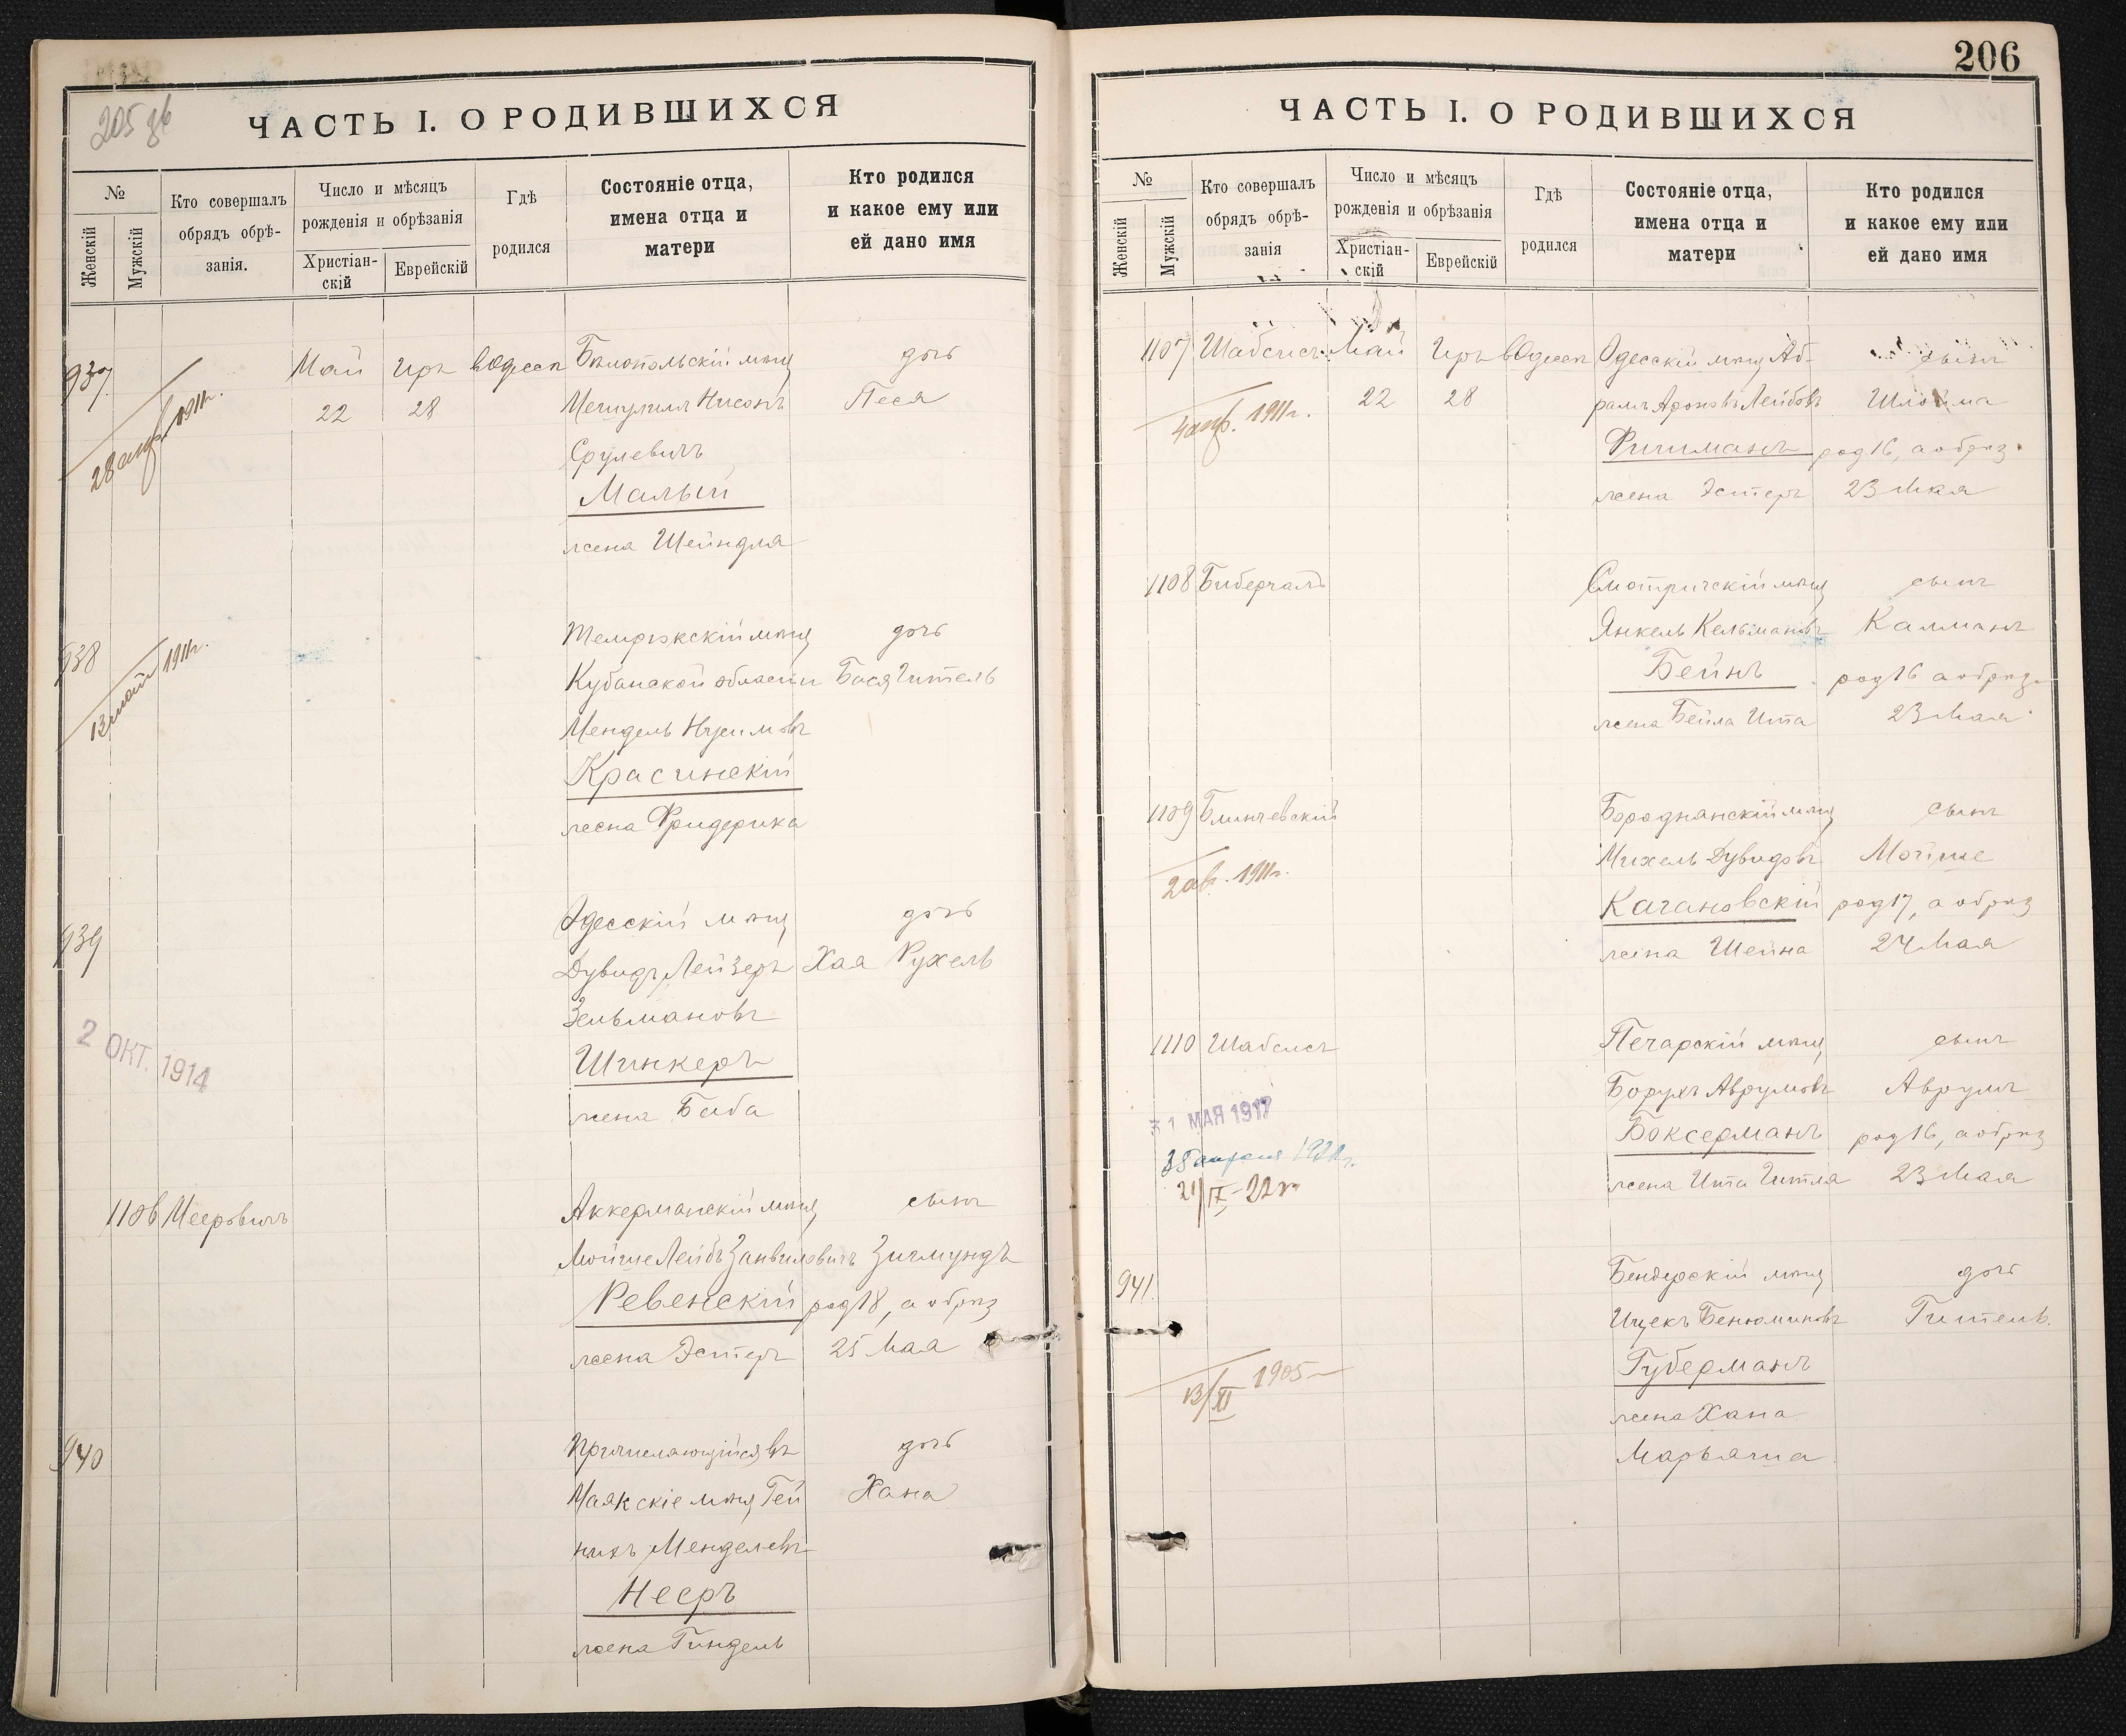 205 зв
ЧАСТЬ I. О РОДИВШИХСЯ
№
Женскій
Мужскій
Кто совершалъ
обрядъ обрѣ-
занія.
Число и мѣсяцъ
рожденія и обрѣзанія
Христіан-
скій
Еврейскій
Гдѣ
родился
Состояніе отца,
имена отца и
матери
Кто родился
и какое ему или
ей дано имя
937 Май Иръ вОдессѣ мѣщ дочь
22 28 Мешулимъ Нисонъ Песя
28 апр. 1911г.
Срулевичъ
Малый
жена Шейндля
938 Темрюкскій мѣщ дочь
13 мая 1911г.
Кубанской области Бася Гитель
Мендель Нусимовъ
Красинскій
жена Фридерика
939 Одесскій мѣщ дочь
Дувидъ Лейзеръ Хая Рухель
Зельмановъ
2 ОКТ. 1914
Шинкеръ
жена Баба
1106 Мееровичъ Аккерманскій мѣщ сынъ
Мойше Лейбъ Занвиловичъ Зигмундъ
Ревенскій род 18, а обрѣз
жена Эстеръ 25 Мая
940 Причисляющійся въ дочь
Маякскіе мѣщ Гей Хана
нихъ Менделевъ
Нееръ
жена Гиндель
206
ЧАСТЬ I. О РОДИВШИХСЯ
№
Женскій
Мужскій
Кто совершалъ
обрядъ обрѣ-
занія
Число и мѣсяцъ
рожденія и обрѣзанія
Христіан-
скій
Еврейскій
Гдѣ
родился
Состояніе отца,
имена отца и
матери
Кто родился
и какое ему или
ей дано имя
1107 Шабсисъ Май Иръ вОдессѣ Одесскій мѣщ Аб- сынъ
22 28 рамъ Ароновъ Лейбовъ Шлойма
4 апр. 1911г.
Фишманъ род 16, а обрѣз.
жена Эстеръ 23 Мая
1108 Биберчалъ Смотричскій мѣщ сынъ
Янкель Кельмановъ Калманъ
Бейнъ род 16 а обрѣз.
жена Бейла Ита 23 Мая
1109 Блинчевскій Бороднянскій мѣщ сынъ
Михель Дувидовъ Мойше
2 ав. 1911г.
Кагановскій род 17, а обрѣз
жена Шейна 24 Мая
1110 Шабсисъ Печарскій мѣщ сынъ
Борухъ Аврумовъ Аврумъ
31 МАЯ 1917
Боксерманъ род 16, а обрѣз
апреля
жена Ита Гитля 23 Мая
21/IX-22г
941. Бендерскій мѣщ дочь
Ицекъ Бенюминовъ Гитель.
Губерманъ
13/XI 1905
жена Хана
Марьяша